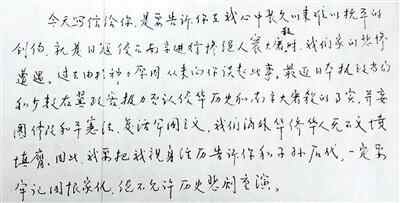 今天写信给你,是要告诉你在我心中长久以来难以抚平的
创伤,就是日寇侵占南京进行惨绝人寰大屠杀时,我们家的悲惨
遭遇。过去由于种种原因从未向你谈起此事。最近日本执政
和少数右翼政客极力否认侵华历史和南京大屠杀的事实,并妄
图修改和平宪法、复活军国主义,我们海外华侨华人无不义愤
填膺。因此,我要把我亲身经历告诉你和子孙后代,一定要
牢记国恨家仇,绝不允许历史悲剧重演。